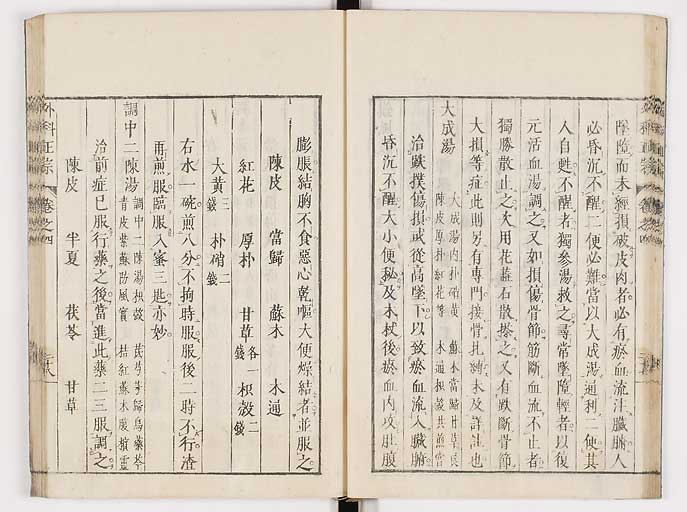 墜墮而未經損破皮肉者必有瘀血流注臟腑人
必昏沉不醒二便必難當以大成湯通利二便其
人自甦不醒者獨參湯救之尋常墜墮輕者以復
元活血湯調之又如損傷骨節筋斷血流不止者
獨勝散止之次用花蕊石散搽之又有跌斷骨節
大損等症此則另有專門接骨扎縛未及詳註也
大成湯 大成湯內朴硝黃 蘇木當歸甘草良
陳皮厚朴紅花等 木通枳殼共煎嘗
治跌撲傷損或從高墜下以致瘀血流入臟腑
昏沉不醒大小便秘及木杖後瘀血內攻肚腹
膨脹結胸不食惡心乾嘔大便燥結者並服之
陳皮 當歸 蘇木 木通
紅花 厚朴 甘草各一錢 枳殼二錢
大黃三錢 朴硝二錢
右水二碗煎八分不拘時服服後二時不行渣
再煎服臨服入蜜三匙亦妙
調中二陳湯 調中二陳湯枳殼 芪芎歸烏藥苓
青皮紫蘇防風實 桔紅蘇木服檳靈
治前症已服行藥之後當進此藥二三服調之
陳皮 半夏 茯苓 甘草
外科正宗 卷之四